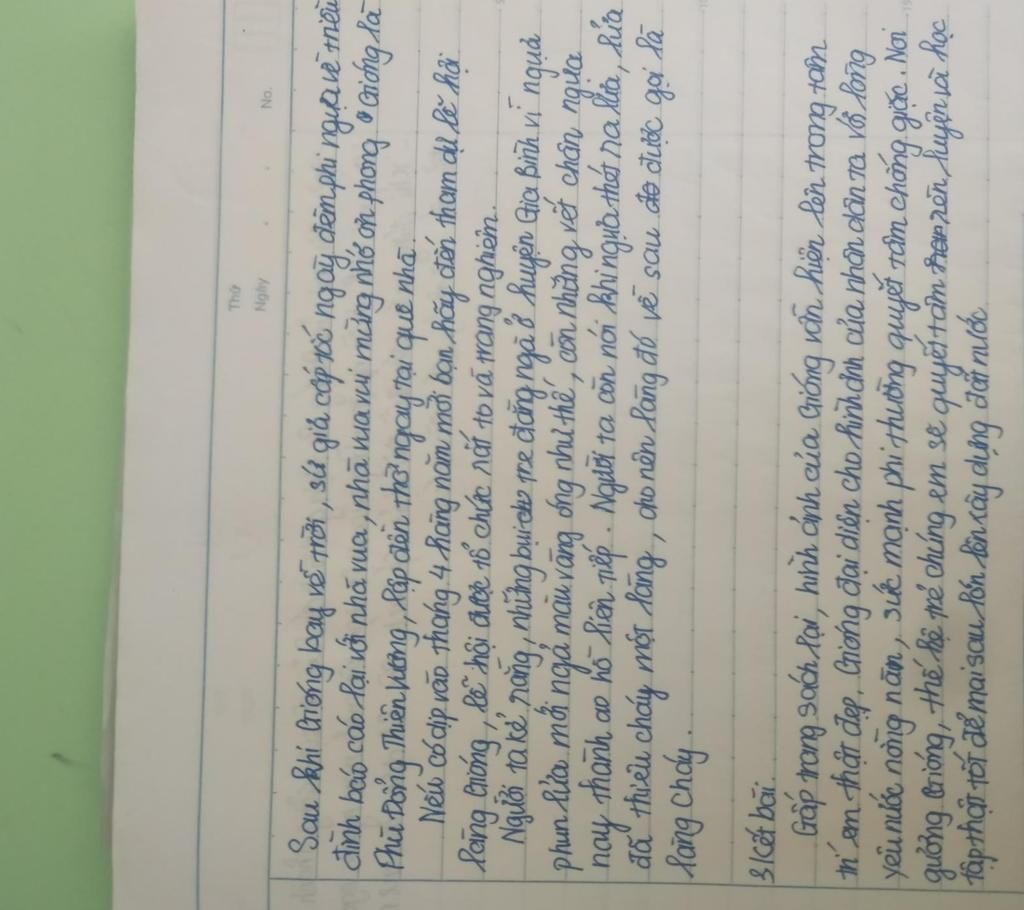 Thứ
Ngày
No.
Sau khi Gióng bay về trời, sứ giả cấp tốc ngày đêm phi ngựa về triều
đình báo cáo lại với nhà vua, nhà vua vui mừng nhớ ơn phong Gióng là
Phù Đổng Thiên Vương, lập đền thờ ngay tại quê nhà.
Nếu có dịp vào tháng 4 hằng năm mời bạn hãy đến tham dự lễ hội
làng Gióng, lễ hội được tổ chức rất to và trang nghiêm.
Người ta kể rằng, những bụi tre đằng ngà ở huyện Gia Bình vì ngựa
phun lửa mới ngả màu vàng óng như thế, còn những vết chân ngựa
nay thành ao hồ liên tiếp. Người ta còn nói khi ngựa thét ra lửa, lửa
đã thiêu cháy một làng, cho nên làng đó về sau được gọi là
làng Cháy.
3. Kết bài.
Gấp trang sách lại, hình ảnh của Gióng vẫn hiện lên trong tâm
trí em thật đẹp. Gióng đại diện cho hình ảnh của nhân dân ta về lòng
yêu nước nồng nàn, sức mạnh phi thường quyết tâm chống giặc. Noi
gương Gióng, thế hệ trẻ chúng em sẽ quyết tâm rèn luyện và học
tập thật tốt để mai sau lớn lên xây dựng đất nước.